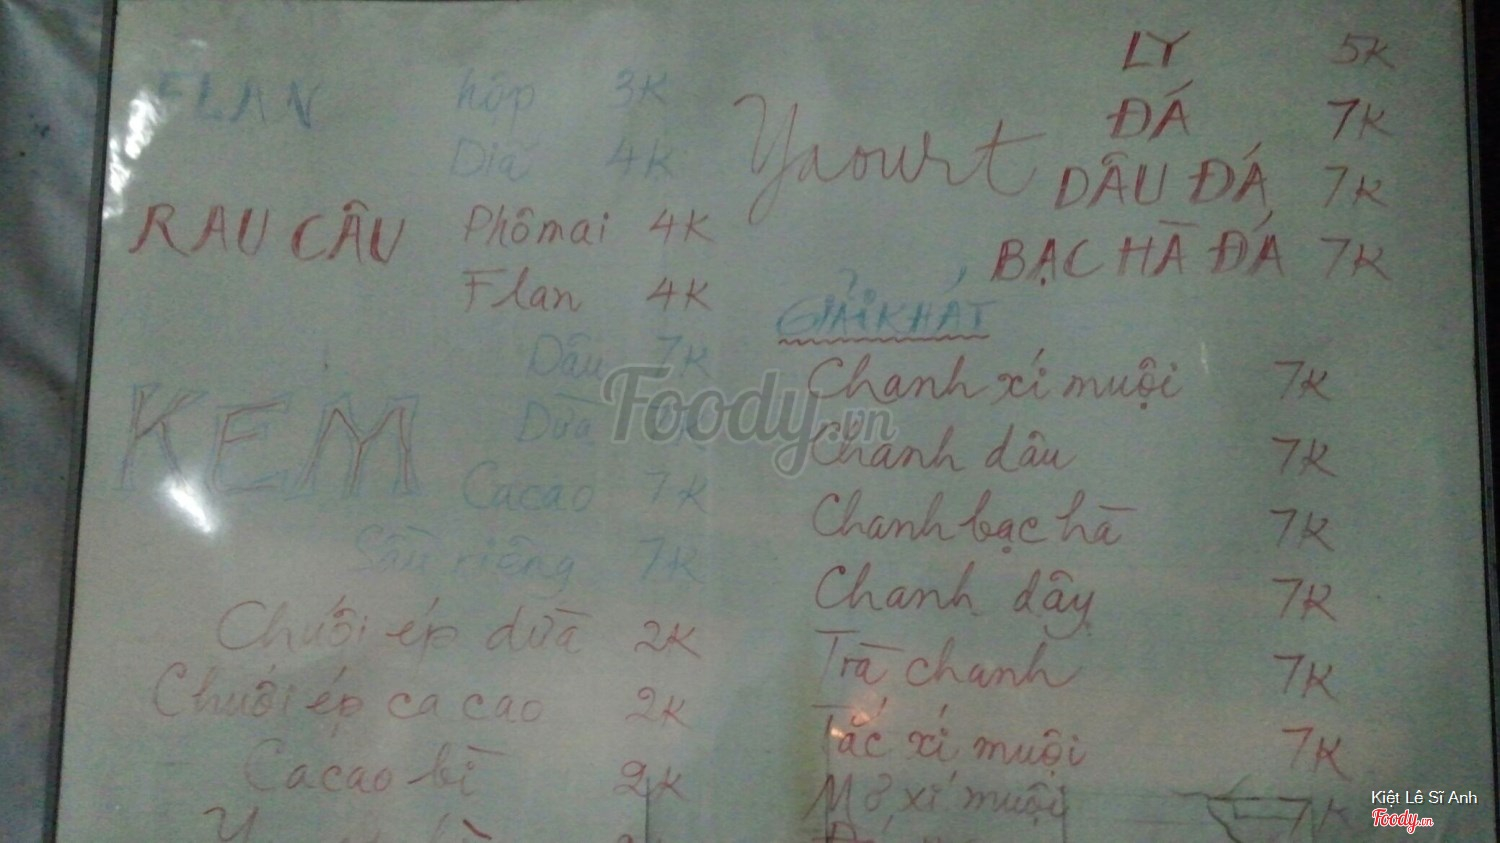 FLAN hộp 3K
Dĩa 4K
RAU CÂU Phômai 4K
Flan 4K
KEM
Dâu 7K
Dừa 7K
Cacao 7K
Sầu riêng 7K
Chuối ép dừa 2K
Chuối ép ca cao 2K
Cacao bì 2K
Yaourt
LY 5K
ĐÁ 7K
DÂU ĐÁ 7K
BẠC HÀ ĐÁ 7K
GIẢI KHÁT
Chanh xí muội 7K
Chanh dâu 7K
Chanh bạc hà 7K
Chanh dây 7K
Trà chanh 7K
Tắc xí muội 7K
Mơ xí muội 7K
Foody.vn
Kiệt Lê Sĩ Anh
Foody.vn